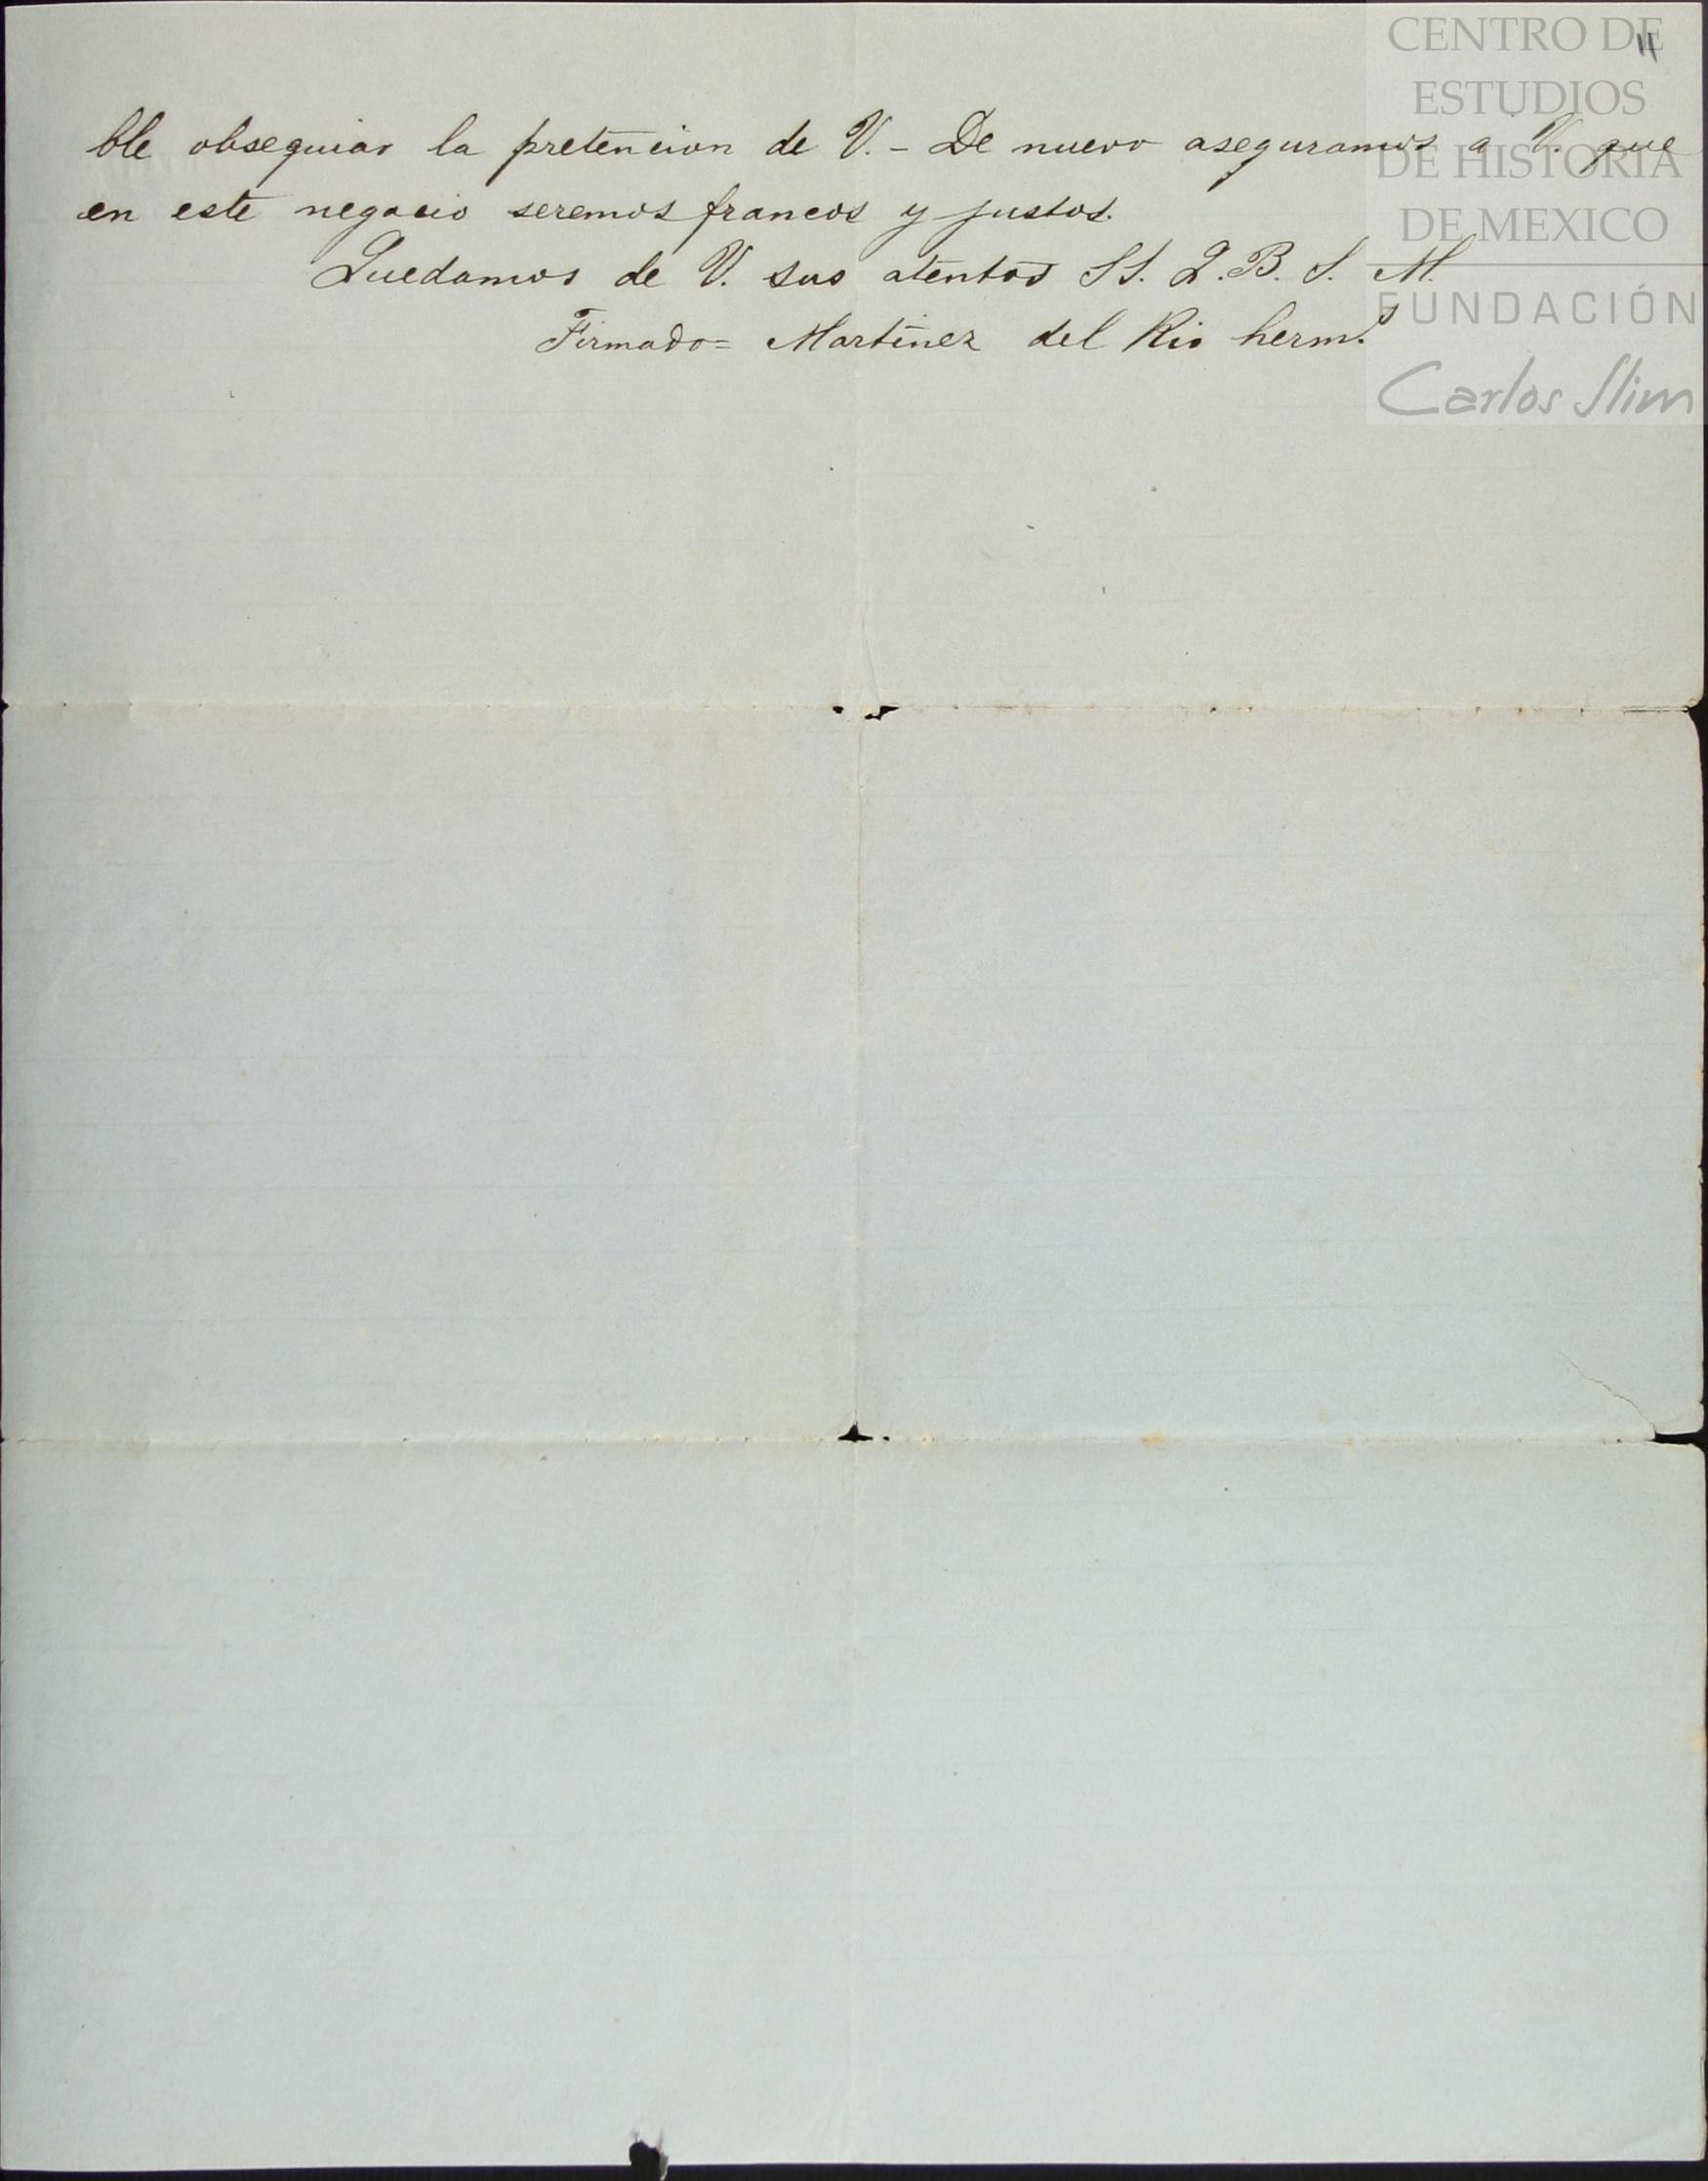 11
CENTRO DE
ESTUDIOS
DE HISTORIA
DE MEXICO
FUNDACIÓN
Carlos Slim
ble obsequiar la pretencion de V. - De nuevo aseguramos a V. que
en este negocio seremos francos y justos.
Quedamos de V. sus atentos SS. Q. B. S. M.
Firmado= Martinez del Rio herm.s